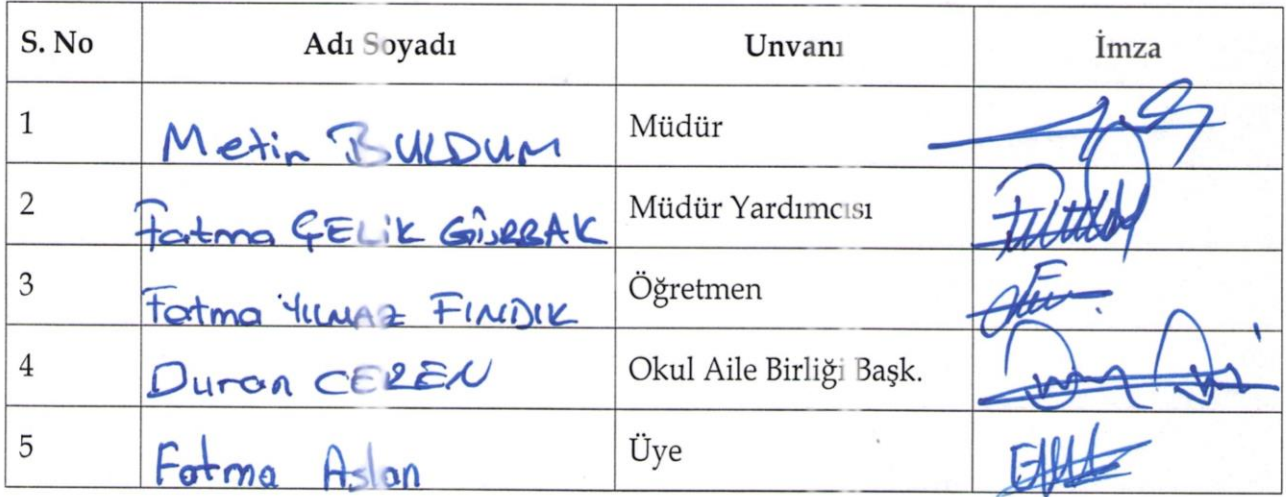 S. No Adı Soyadı Unvanı İmza
1 Metin BULDUM Müdür
2 Fatma ÇELİK Müdür Yardımcısı
3 Fatma YILMAZ FINDIK Öğretmen
4 Duran CEREN Okul Aile Birliği Başk.
5 Fatma Aslan Üye